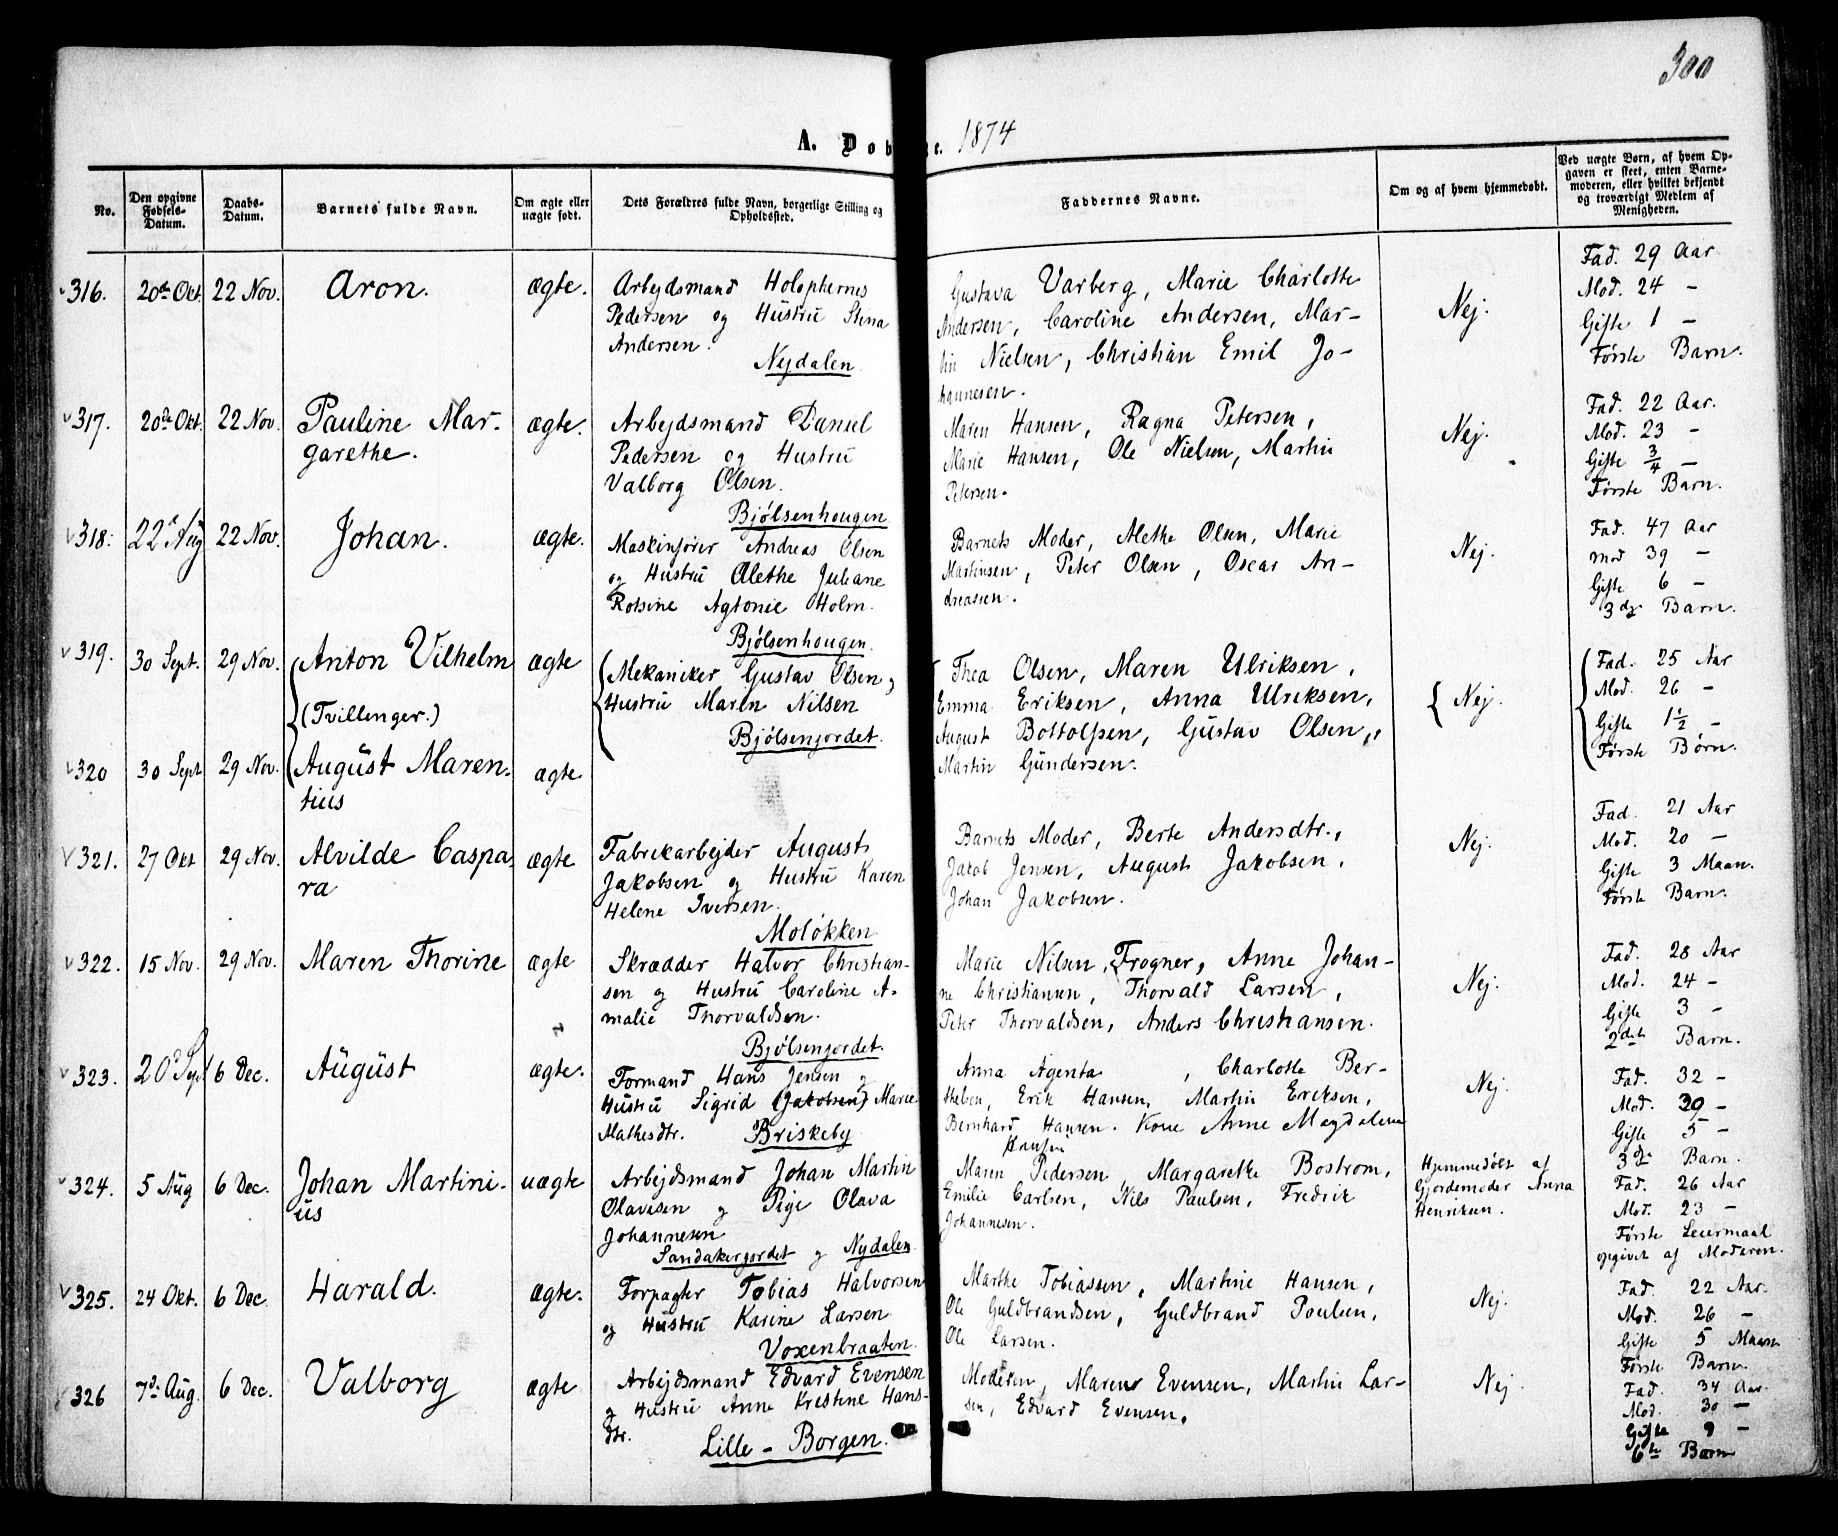 300
A. Døb 1874
No.
Den opgivne Fødsels-Datum.
Daabs-Datum.
Barnets fulde Navn.
Om ægte eller uægte født.
Dets Forældres fulde Navn, borgerlige Stilling og Opholdssted.
Faddernes Navne.
Om og af hvem hjemmedøbt.
Ved uægte Børn, af hvem Op-
gaven er skeet, enten Barne-
moderen, eller hvilket bekjendt
og troværdigt Medlem af
Menigheden.
316. 20de Okt. 22 Nov. Aron. ægte.
Arbejdsmand Holophernes
Pedersen og Hustru Stina
Andersen.
Nydalen
Gustava Varberg, Marie Charlotte
Andersen, Caroline Andersen, Mar-
tin Nielsen, Christian Emil Jo-
hannesen.
Nej.
Fad. 29 Aar
Mod. 24 -
Gifte 1 -
Første Barn.
317. 20de Okt. 22 Nov. Pauline Mar-
garethe. ægte.
Arbejdsmand Daniel
Pedersen og Hustru
Valborg Olsen.
Bjølsenhougen
Maren Hansen, Ragna Petersen,
Marie Hansen, Ole Nielsen, Martin
Petersen.
Nej.
Fad. 22 Aar.
Mod. 23 -
Gifte 3/4 -
Første Barn.
318. 22 Aug 22 Nov. Johan. ægte.
Maskinfører Andreas Olsen
og Hustru Alethe Juliane
Rosine Agtonie Holm.
Bjølsenhougen.
Barnets Moder, Alethe Olsen, Marie
Martinsen, Peter Olsen, Oscar An-
dreasen.
Nej.
Fad. 47 Aar
mod 39 -
Gifte 6 -
3die Barn.
319. 30 Sept. 29 Nov. Anton Vilhelm ægte
(Tvillinger.)
Mekaniker Gustav Olsen,
Hustru Maren Nilsen
Bjølsenjordet.
Thea Olsen, Maren Ulriksen,
Emma Eriksen, Anna Ulriksen,
August Bottolfsen, Gustav Olsen,
Martin Gundersen.
Nej.
Fad. 25 Aar
Mod. 26 -
Gifte 1 1/2 -
Første Børn.
320 30 Sept 29 Nov. August Maren-
tius ægte
321. 27 Okt 29 Nov. Alvilde Caspa
ra ægte
Fabrikarbejder August
Jakobsen og Hustru Karen
Helene Iversen.
Moløkken
Barnets Moder, Berte Andersdtr.,
Jakob Jensen, August Jakobsen,
Johan Jakobsen.
Nej.
Fad. 21 Aar
Mod. 20 -
Gifte 3 Maan.
Første Barn.
322. 15 Nov. 29 Nov. Maren Thorine ægte
Skrædder Halvor Christian-
sen og Hustru Caroline A-
malie Thorvaldsen.
Bjølsenjordet.
Marie Nilsen, Frogner, Anne Johan-
ne Christiansen, Thorvald Larsen,
Peter Thorvaldsen, Anders Christiansen.
Nej.
Fad. 28 Aar
Mod. 24 -
Gifte 3 -
2det Barn.
323. 20 Sept 6 Dec. August ægte.
Formand Hans Jensen og
Hustru Sigrid (Jakobsen) Marie
Mathesdtr. Briskeby
Anna Agenta , Charlotte Ber-
thelsen, Erik Hansen, Martin Eriksen,
Bernhard Hansen. Kone Anne Magdalena
Hansen
Nej
Fad. 32 -
Mod. 39 -
Gifte 5 -
3die Barn.
324. 5 Aug 6 Dec. Johan Martini-
us uægte
Arbejdsmand Johan Martin
Olavesen og Pige Olava
Johannesen
Sandakerjordet og Nydalen
Maren Pedersen Margarethe Bostrom,
Emilie Carlsen, Nils Paulsen, Fredrik
Johannesen.
Hjemmedøbt af
Gjordemoder Anna
Henriksen.
Fad. 26 Aar
Mod. 23 -
Første Leiermaal
opgivet af Moderen.
325. 24 Okt. 6 Dec. Harald. ægte.
Forpagter Tobias Halvorsen
og Hustru Karine Larsen
Voxenbraaten.
Marthe Tobiassen, Martine Hansen,
Ole Guldbrandsen, Guldbrand Poulsen,
Ole Larsen.
Nej.
Fad. 22 Aar.
Mod. 26 -
Gifte 5 Maan
Første Barn.
326 7de Aug. 6 Dec. Valborg ægte
Arbejdsmand Edvard Evensen
og Hustru Anne Kristine Hans-
dtr.
Lille-Borgen.
Moderen, Maren Evensen, Martin Lar-
sen, Edvard Evensen.
Nej.
Fad. 34 Aar.
Mod. 30 -
Gifte 9 -
6te Barn